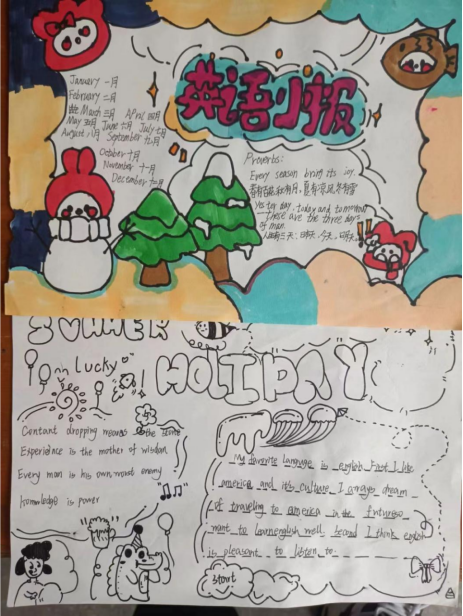 英语小报
January 一月
February 二月
March 三月 April 四月
May 五月 June 六月 July 七月
August 八月 September 九月
October 十月
November 十一月
December 十二月
Proverbs:
Every season brings its joy.
春有百花秋有月,夏有凉风冬有雪
Yesterday, today and tomorrow
these are the three days
of man.
人生有三天:昨天、今天、明天
SUMMER
Lucky
HOLIDAY
Contant dropping means the stone
Experience is the mother of wisdom
Every man is his own worst enemy
Knowledge is power
My favorite language is english First I like
america and it's culture I always dream
of traveling to america in the future so
I want to learn english well Second I think english
is pleasant to listen to
start